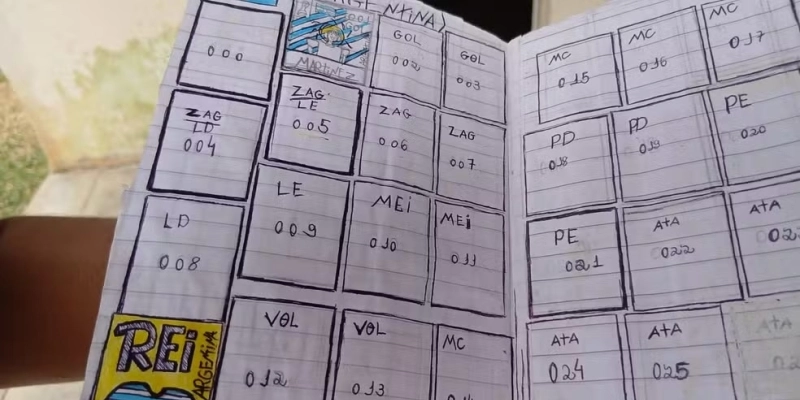 GENTINA)
000
001
MARTINEZ
GOL
002
GOL
003
ZAG
LD
004
ZAG
LE
005
ZAG
006
ZAG
007
LD
008
LE
009
MEi
010
MEi
011
REi
ARGENtiNA
VOL
012
VOL
013
MC
014
MC
015
MC
016
MC
017
PD
018
PD
019
PE
020
PE
021
AtA
022
AtA
02
AtA
024
AtA
025
AtA